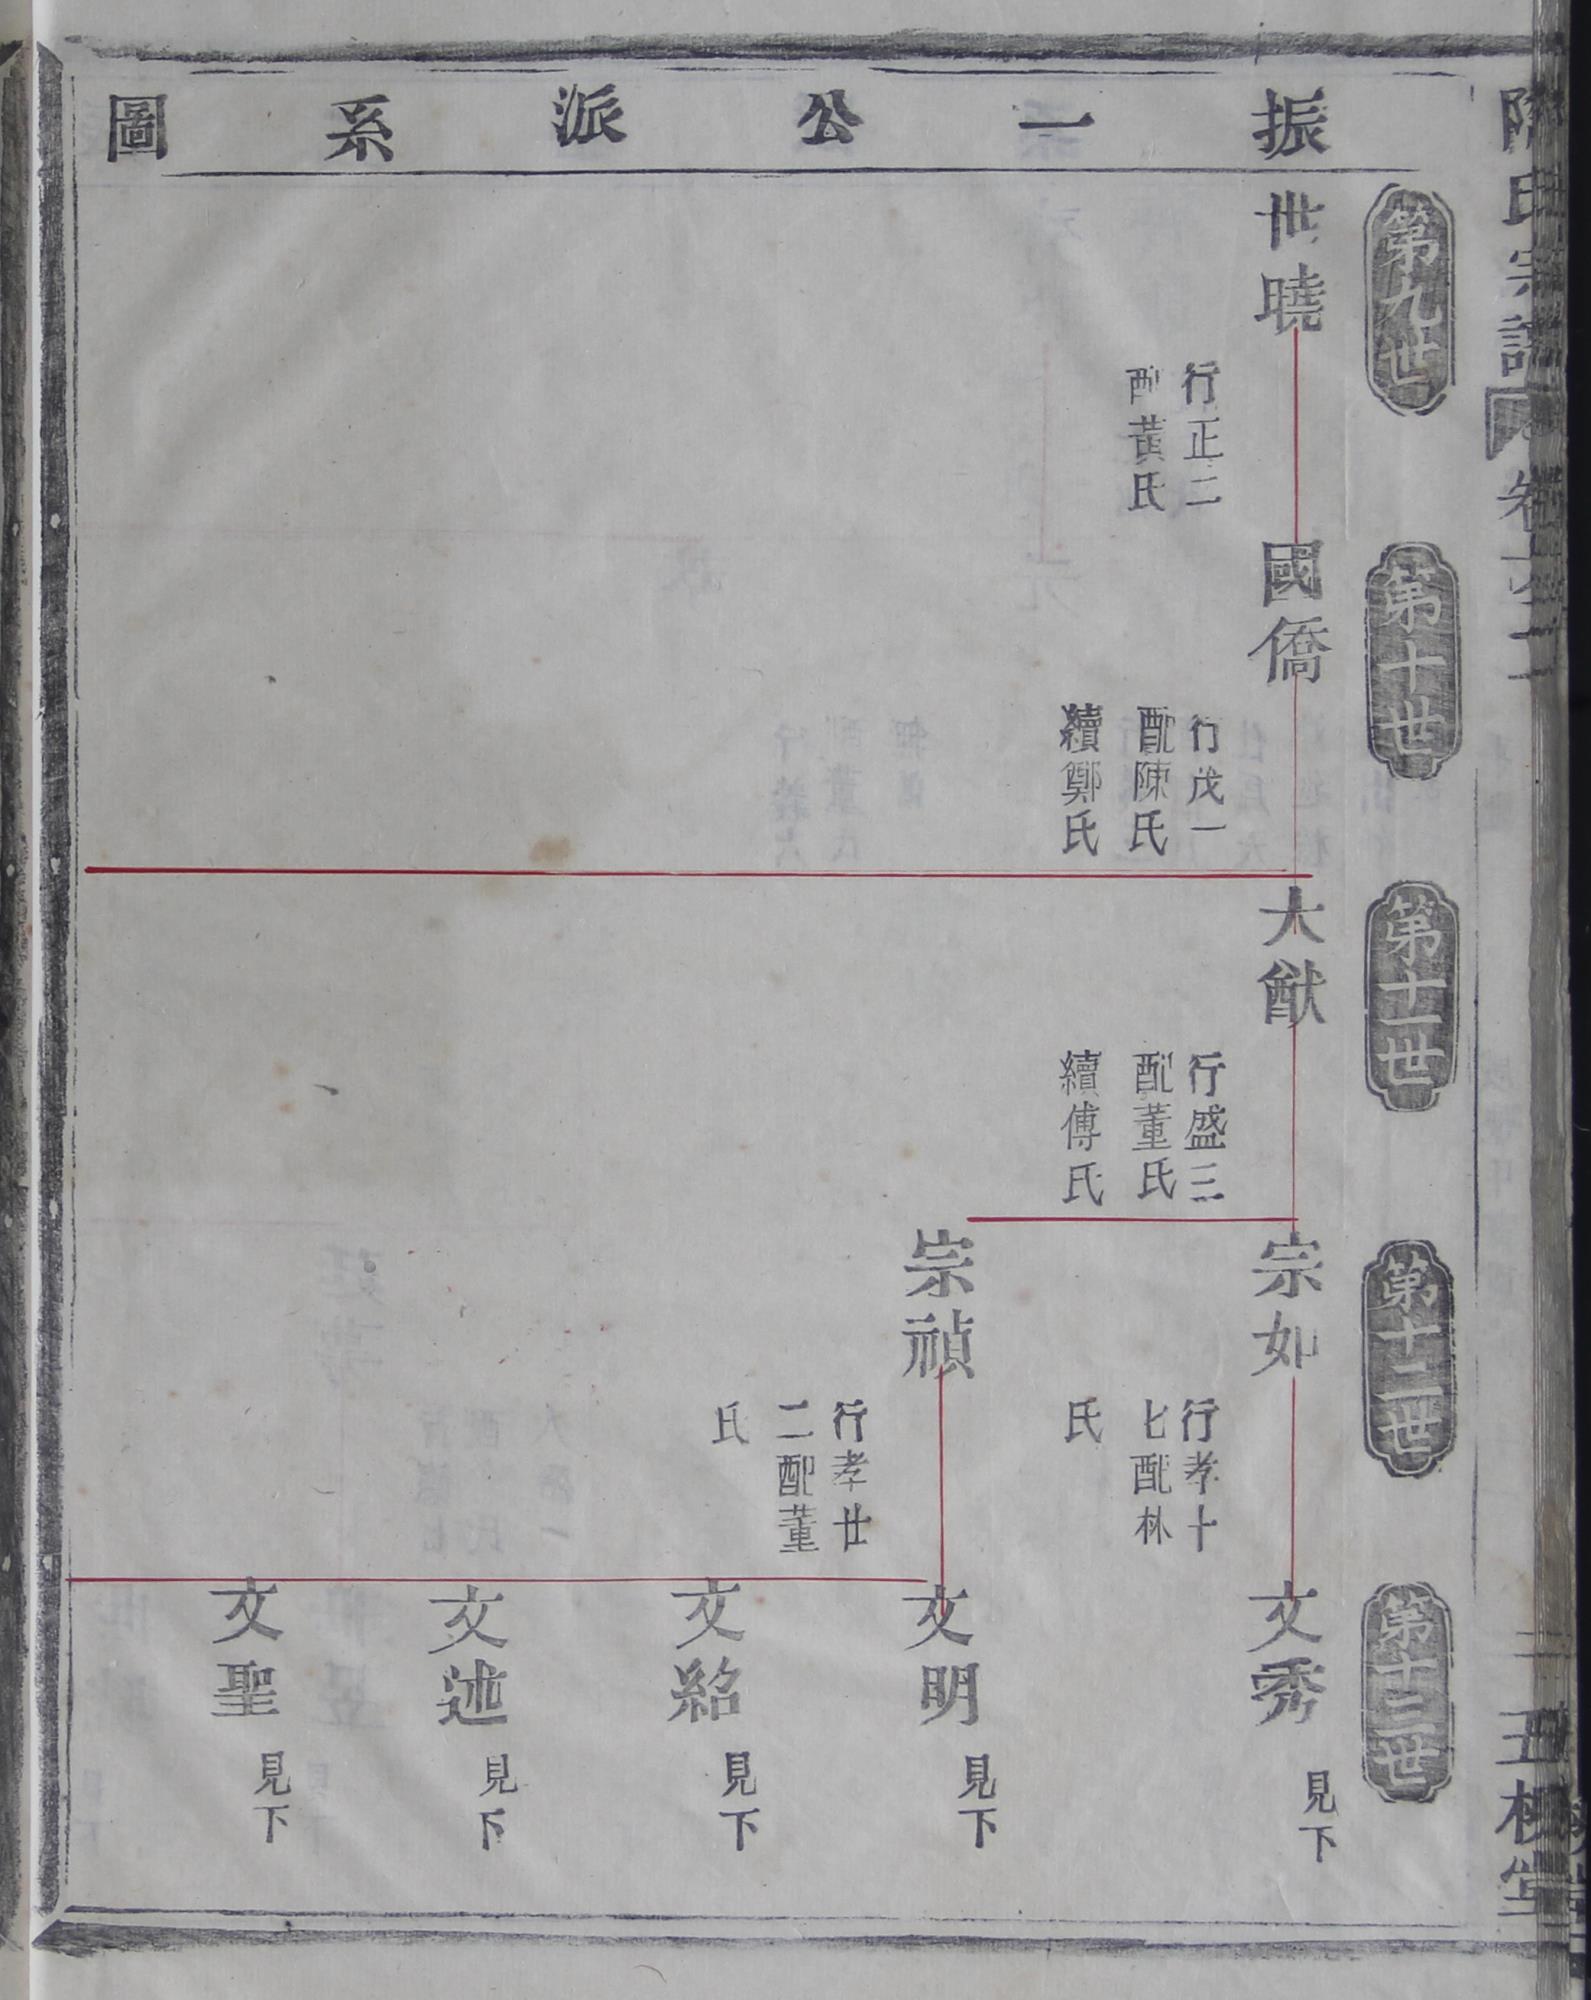 振一公派系圖
第九世
世曉
行正二
配黃氏
第十世
國僑
行茂一
配陳氏
續鄭氏
第十一世
大猷
行盛三
配董氏
續傅氏
第十二世
宗如
行孝十
七配林
氏
宗禎
行孝廿
二配董
氏
第十三世
文秀
見下
文明
見下
文紹
見下
文述
見下
文聖
見下
氏宗譜
卷
堂